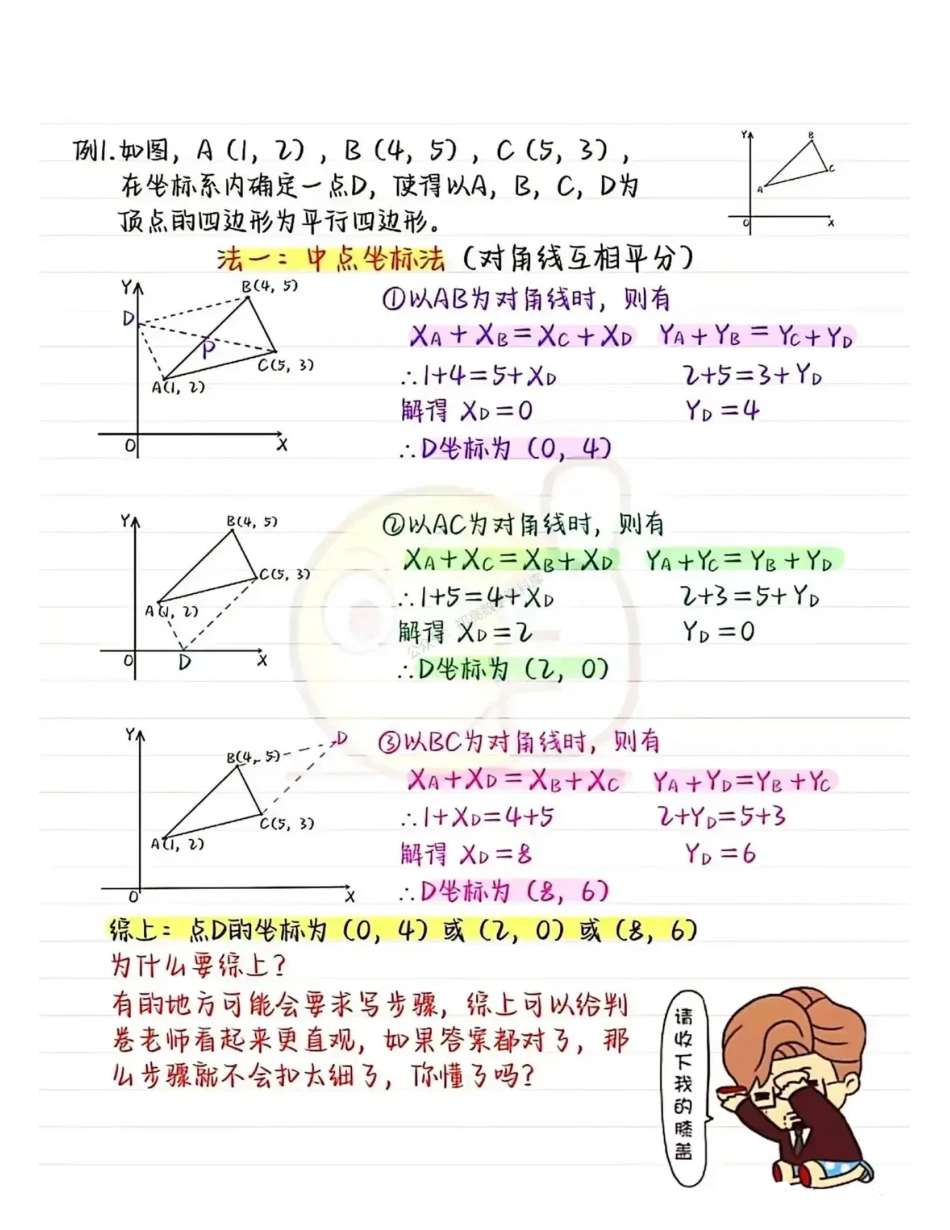 例1.如图，A（1，2），B（4，5），C（5，3），
在坐标系内确定一点D，使得以A，B，C，D为
顶点的四边形为平行四边形。
Y
B
C
A
O
X
法一：中点坐标法（对角线互相平分）
Y
B(4，5)
D
P
C(5，3)
A(1，2)
O
X
①以AB为对角线时，则有
XA+XB=XC+XD YA+YB=YC+YD
∴1+4=5+XD 2+5=3+YD
解得 XD=0 YD=4
∴D坐标为（0，4）
Y
B(4，5)
C(5，3)
A(1，2)
O
D
X
②以AC为对角线时，则有
XA+XC=XB+XD YA+YC=YB+YD
∴1+5=4+XD 2+3=5+YD
解得 XD=2 YD=0
∴D坐标为（2，0）
Y
D
B(4，5)
C(5，3)
A(1，2)
O
X
③以BC为对角线时，则有
XA+XD=XB+XC YA+YD=YB+YC
∴1+XD=4+5 2+YD=5+3
解得 XD=8 YD=6
∴D坐标为（8，6）
综上：点D的坐标为（0，4）或（2，0）或（8，6）
为什么要综上？
有的地方可能会要求写步骤，综上可以给判
卷老师看起来更直观，如果答案都对了，那
么步骤就不会扣太细了，你懂了吗？
请收下我的膝盖